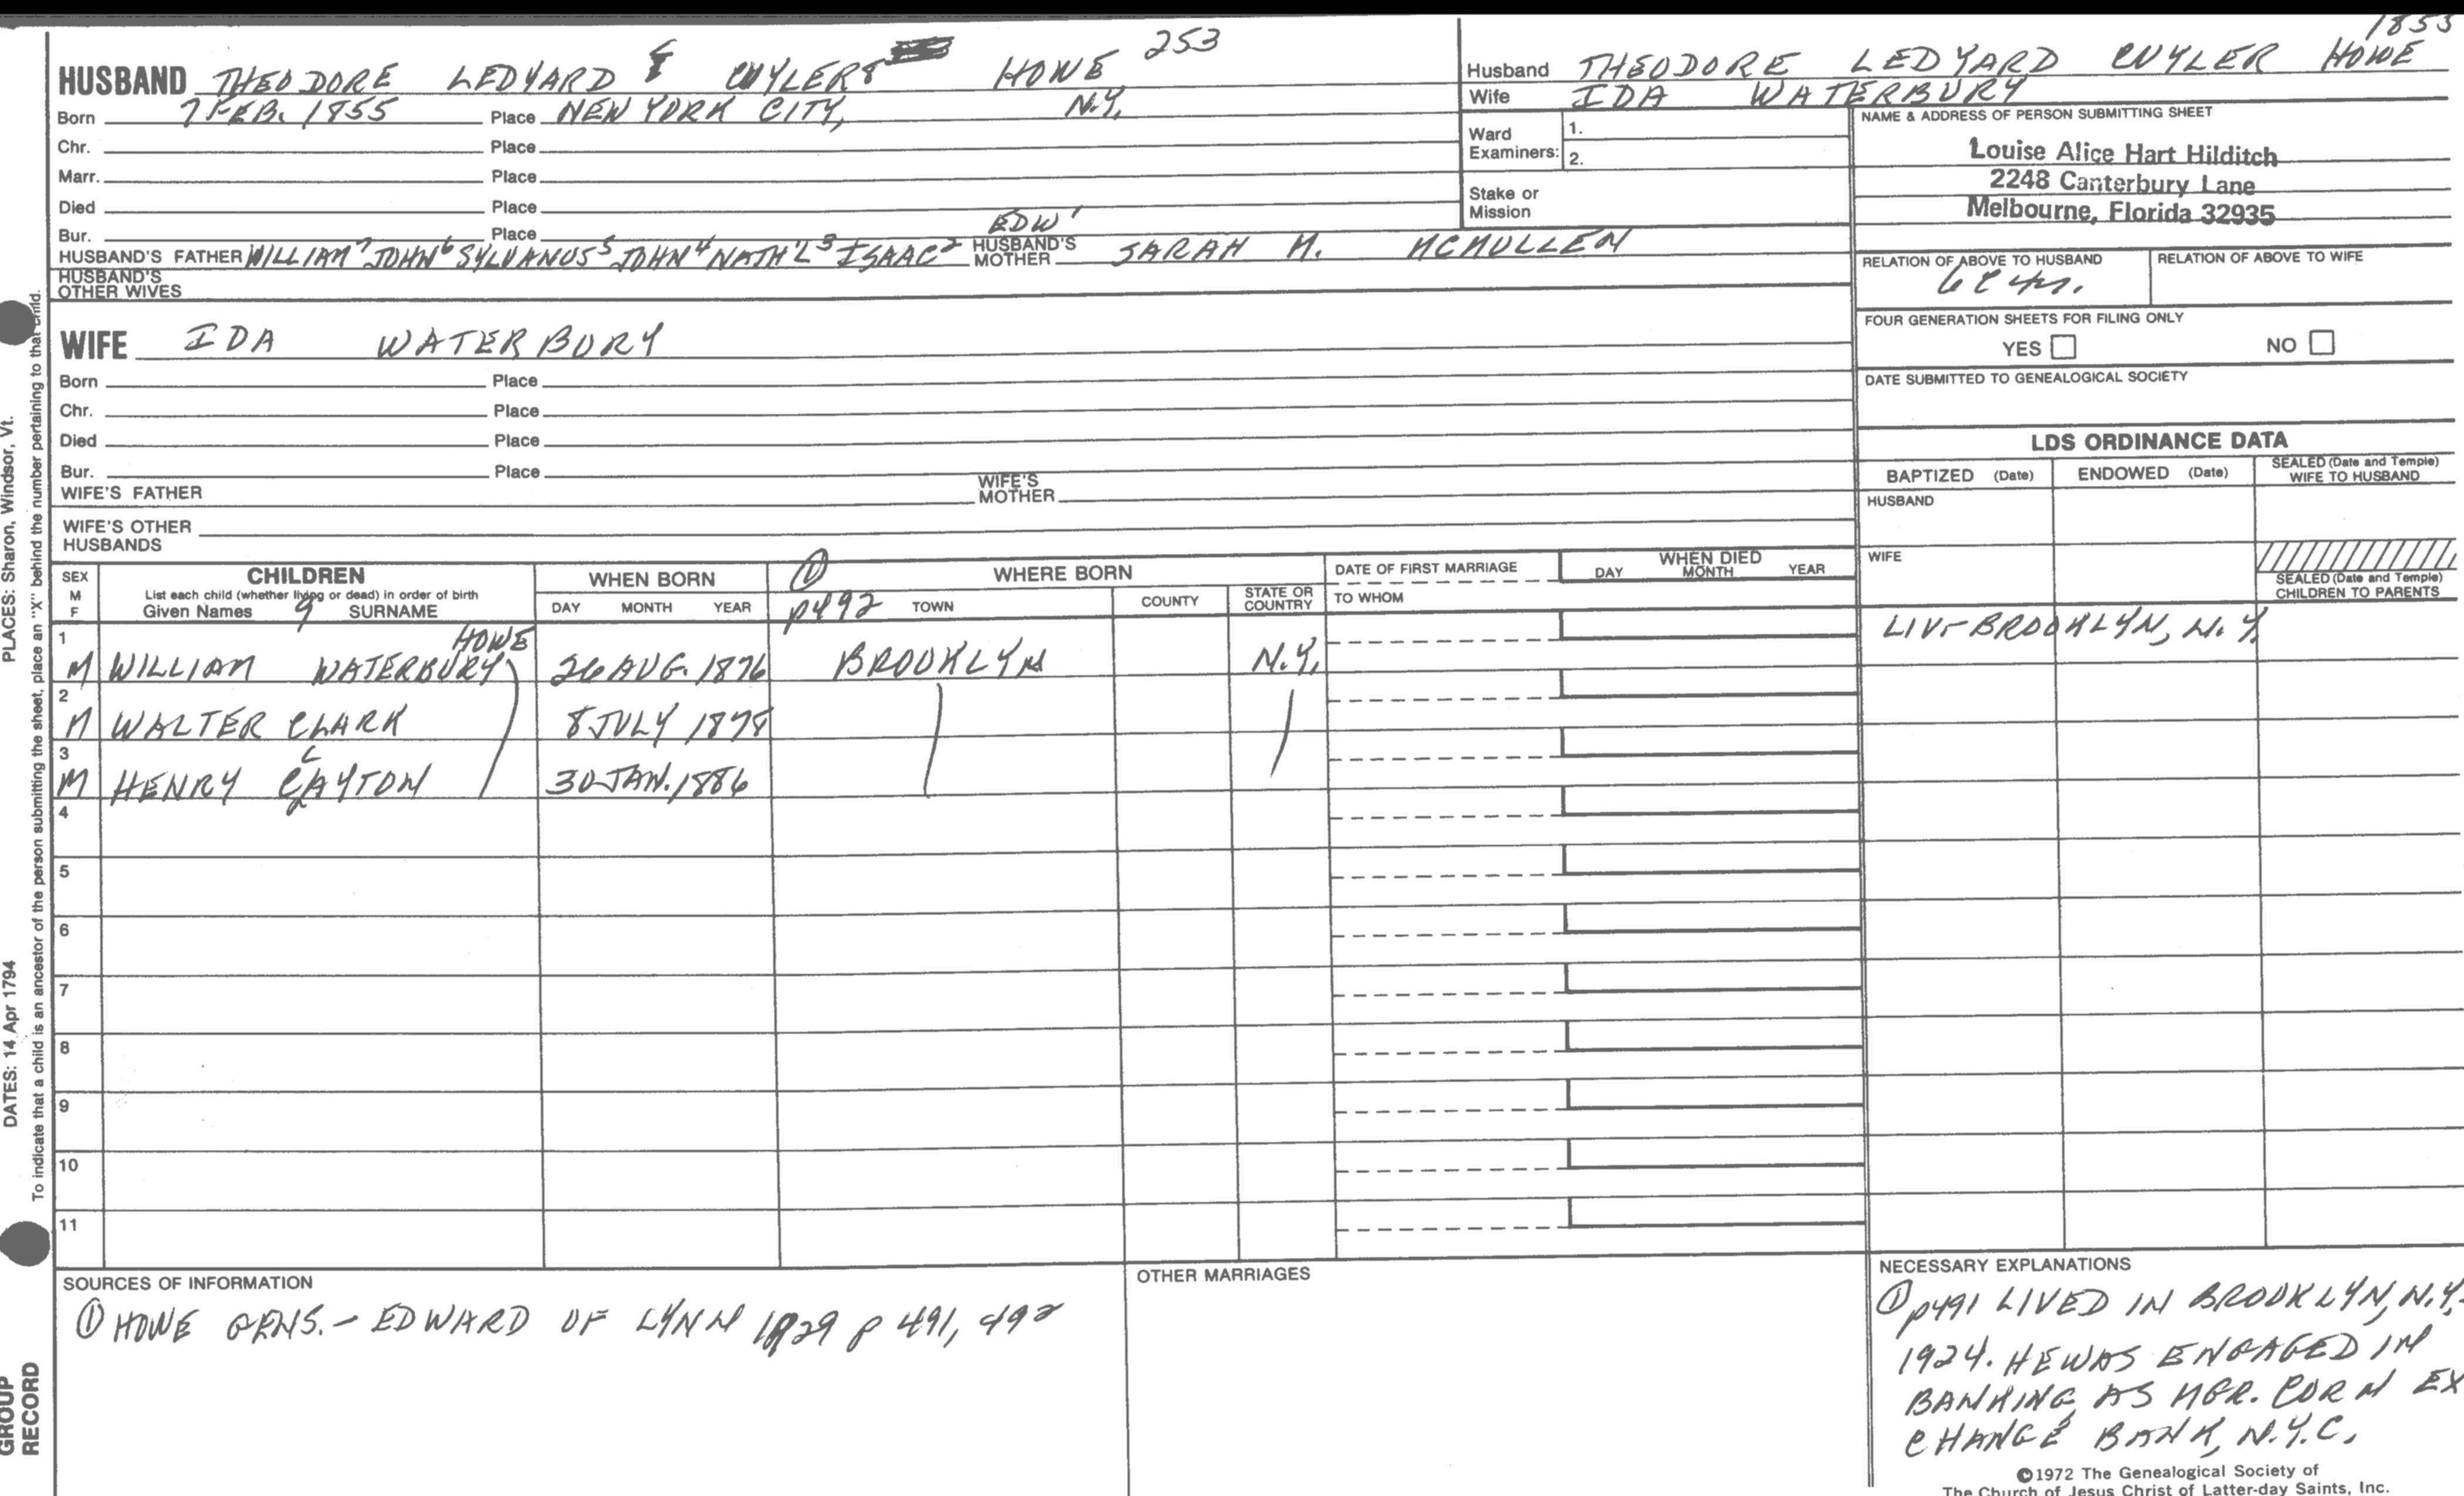 1855
HUSBAND THEODORE LEDYARD 8 CUYLER 8 HOWE 253
Born 7 FEB. 1855 Place NEW YORK CITY, N.Y.
Chr. Place
Marr. Place
Died Place
Bur. Place
EDW 1
HUSBAND'S FATHER WILLIAM 7 JOHN 6 SYLVANUS 5 JOHN 4 NATH'L 3 ISAAC 2 HUSBAND'S MOTHER SARAH M. MCMULLEN
HUSBAND'S OTHER WIVES
WIFE IDA WATERBURY
Born Place
Chr. Place
Died Place
Bur. Place
WIFE'S FATHER WIFE'S MOTHER
WIFE'S OTHER HUSBANDS
Husband THEODORE LEDYARD CUYLER HOWE
Wife IDA WATERBURY
Ward Examiners: 1.
2.
Stake or Mission
NAME & ADDRESS OF PERSON SUBMITTING SHEET
Louise Alice Hart Hilditch
2248 Canterbury Lane
Melbourne, Florida 32935
RELATION OF ABOVE TO HUSBAND RELATION OF ABOVE TO WIFE
FOUR GENERATION SHEETS FOR FILING ONLY
YES NO
DATE SUBMITTED TO GENEALOGICAL SOCIETY
LDS ORDINANCE DATA
BAPTIZED (Date) ENDOWED (Date) SEALED (Date and Temple) WIFE TO HUSBAND
HUSBAND
WIFE
SEALED (Date and Temple) CHILDREN TO PARENTS
SEX M F
CHILDREN
List each child (whether living or dead) in order of birth
Given Names 9 SURNAME
WHEN BORN
DAY MONTH YEAR
① p492
WHERE BORN
TOWN COUNTY STATE OR COUNTRY
DATE OF FIRST MARRIAGE
TO WHOM
WHEN DIED
DAY MONTH YEAR
1 M WILLIAM WATERBURY HOWE 26 AUG. 1876 BROOKLYN N.Y. LIV- BROOKLYN, N.Y.
2 M WALTER CLARK 8 JULY 1878
3 M HENRY CLAYTON 30 JAN. 1886
4
5
6
7
8
9
10
11
SOURCES OF INFORMATION
① HOWE GENS. - EDWARD OF LYNN 1929 p 491, 492
OTHER MARRIAGES
NECESSARY EXPLANATIONS
① p491 LIVED IN BROOKLYN, N.Y.
1924. HE WAS ENGAGED IN
BANKING AS MGR. CORN EX
CHANGE BANK, N.Y.C.
©1972 The Genealogical Society of
The Church of Jesus Christ of Latter-day Saints, Inc.
PLACES: Sharon, Windsor, Vt.
DATES: 14 Apr 1794
To indicate that a child is an ancestor of the person submitting the sheet, place an "X" behind the number pertaining to that child.
GROUP
RECORD